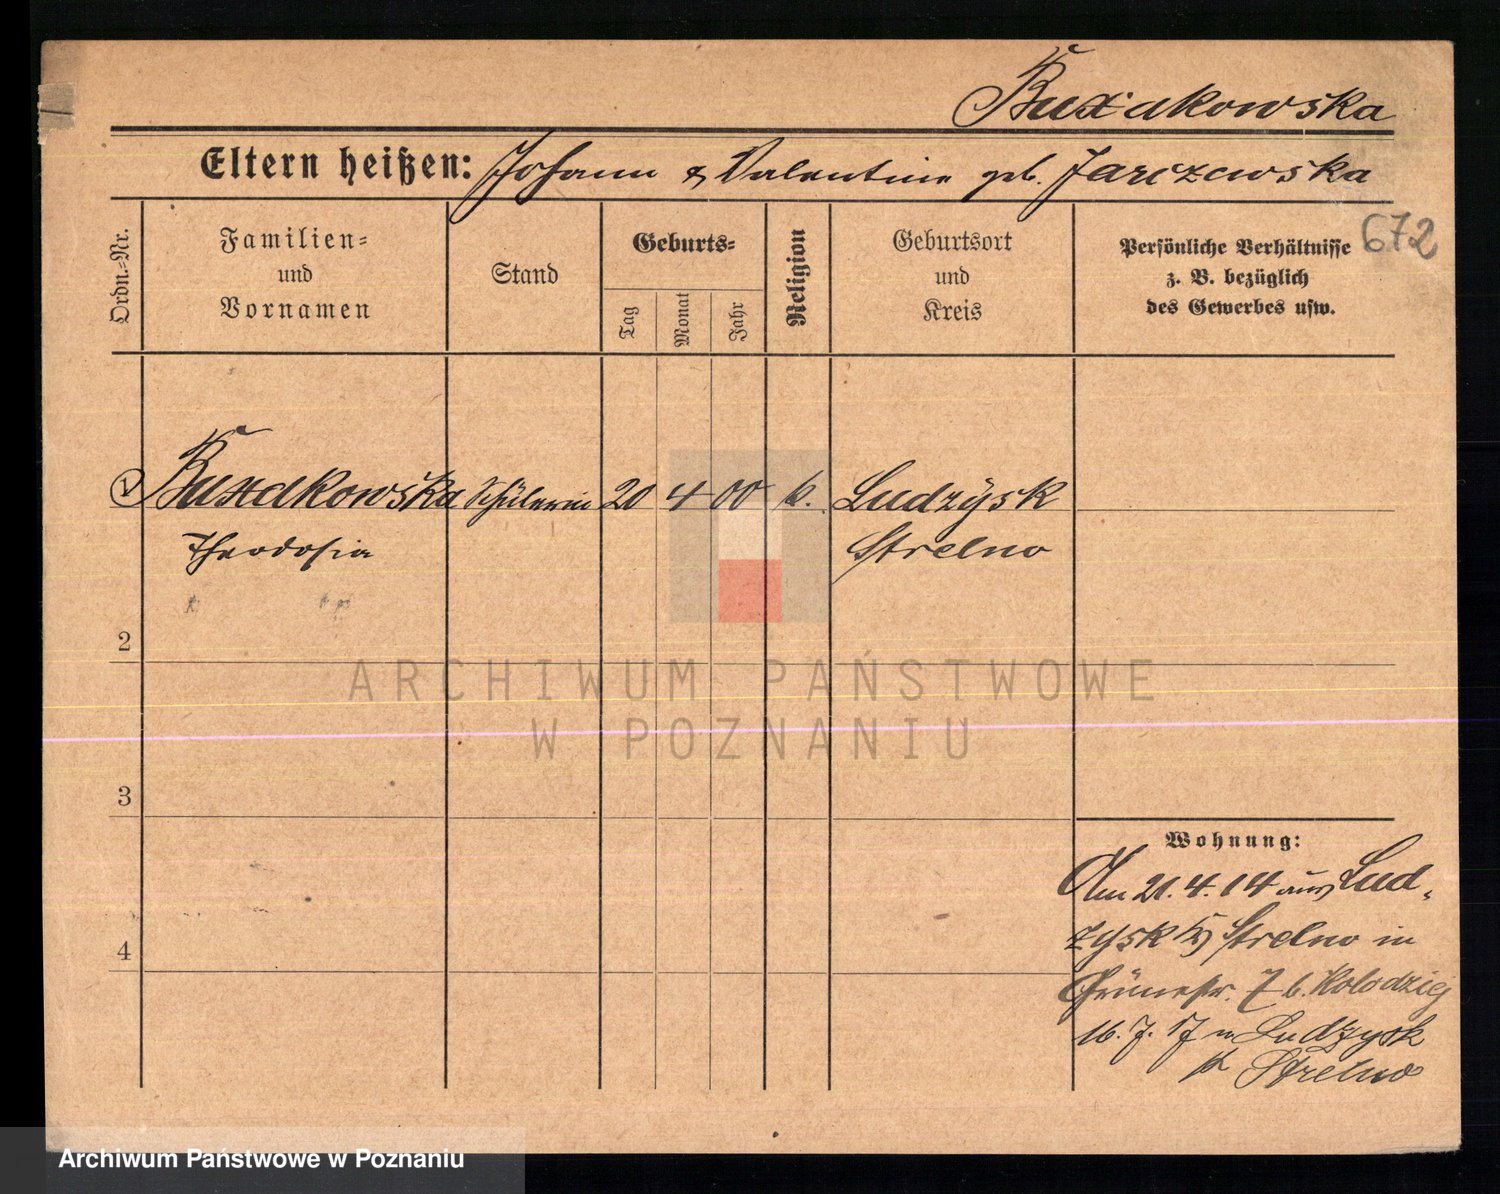 Buxakowska
Eltern heißen: Johann & Valentine geb. Jarczewska
672
Ordn.=Nr.
Familien=
und
Vornamen
Stand
Geburts=
Tag
Monat
Jahr
Religion
Geburtsort
und
Kreis
Persönliche Verhältnisse
z. B. bezüglich
des Gewerbes usw.
1 Buxakowska Schülerin 20 4 00 k. Ludzysk
Theodosia Strelno
2
3
4
Wohnung:
Am 21.4.14 aus Lud-
zysk Strelno in
Grünestr. 7 b. Kolodziej
16.7.17 n Ludzysk
Strelno
ARCHIWUM PAŃSTWOWE
W POZNANIU
Archiwum Państwowe w Poznaniu